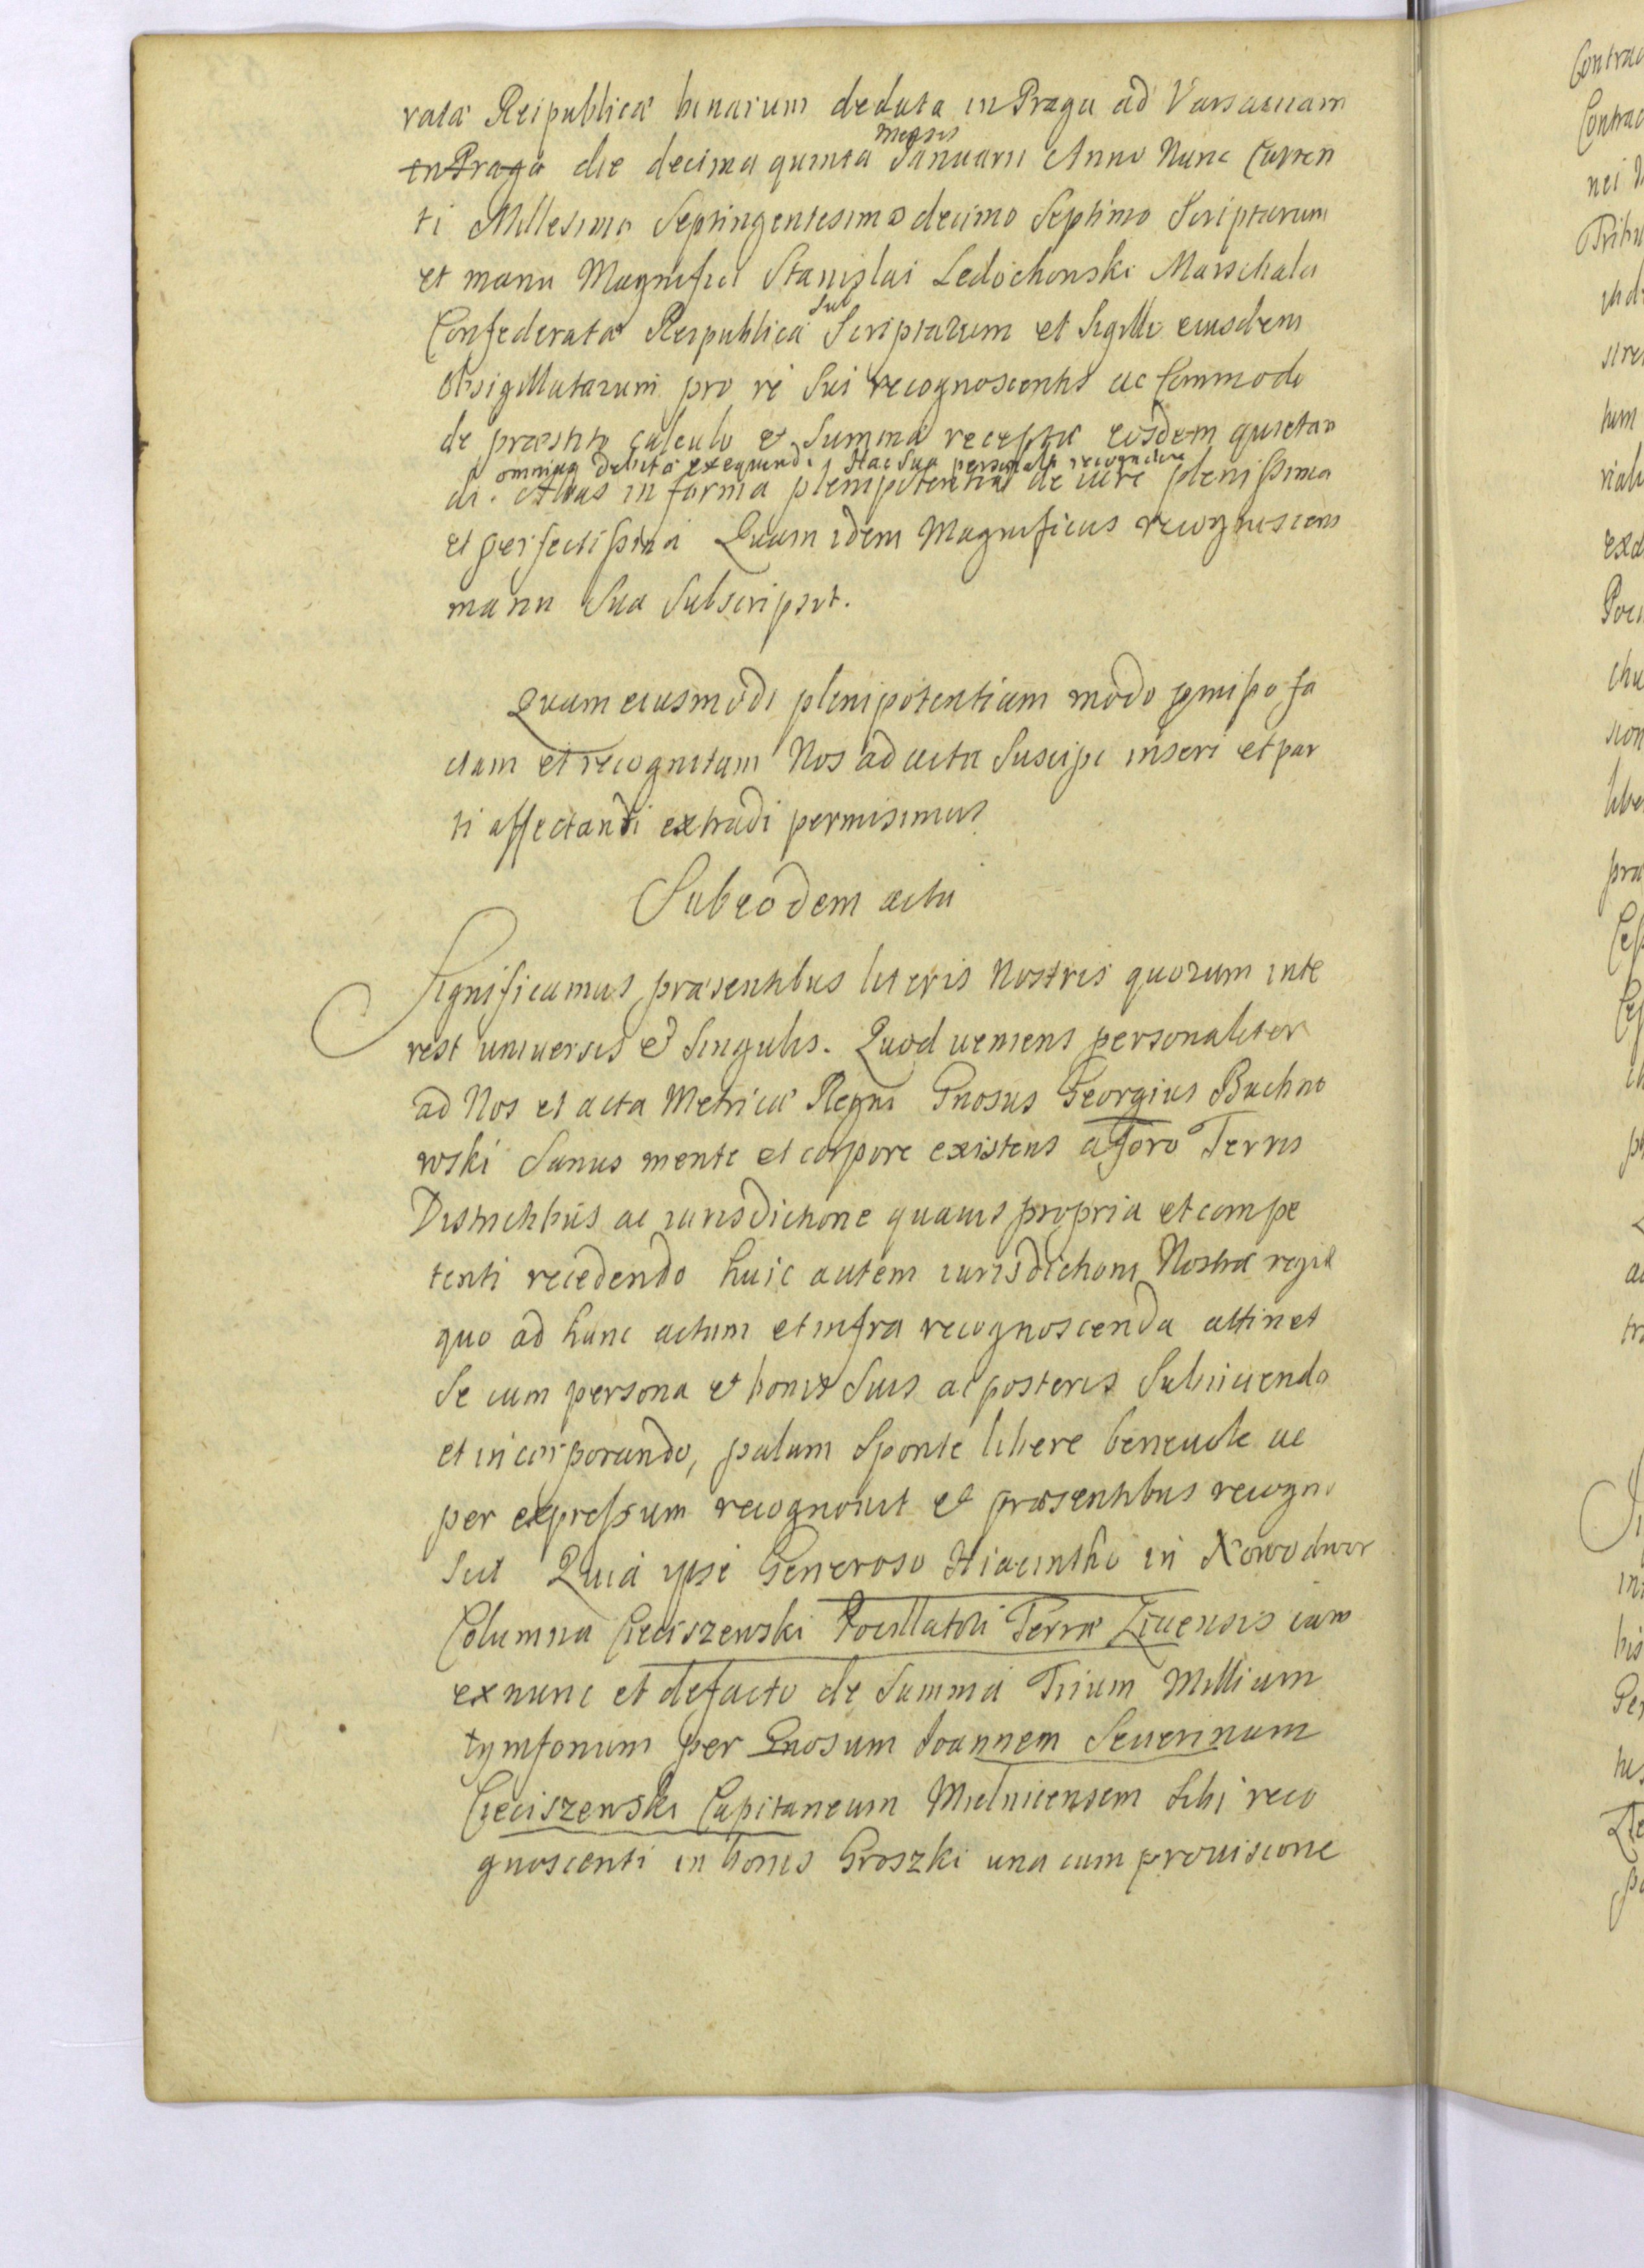 ratæ Reipublicæ binarum dedata in Praga ad Varsaviam
in Praga die decima quinta Mensis Januarii Anno Nunc Curren
ti Millesimo Septingentesimo decimo Septimo Scriptarum
et manu Magnifici Stanislai Ledochowski Marschalci
Confederatæ Reipublicæ Sub Scriptarum et Sigillo eiusdem
obsigillatarum pro re Sui recognoscentis ac Commodo
de præstito calculo et Summa recepta eosdem quietan
omniaq debita exequendi, Hac Sua personali recognitione
di. Alias in forma plenipotentiæ de iure plenissima
et perfectissima Quam idem Magnificus recognoscens
manu Sua Subscripsit.
Quam eiusmodi plenipotentiam modo præmisso fa
ctam et recognitam Nos ad acta Suscipi inseri et par
ti affectandi extradi permisimus
Sub eodem actu
Significamus præsentibus literis Nostris quorum inte
rest universis et Singulis. Quod veniens personaliter
ad Nos et acta Metricæ Regni Gnosus Georgius Buchno
wski Sanus mente et corpore existens a foro Terris
Districtibus ac iurisdictione quavis propria et compe
tenti recedendo huic autem iurisdictioni Nostræ regiæ
quo ad hunc actum et infra recognoscenda attinet
Se cum persona et bonis Suis ac posteris Subiiciendo
et incorporando, palam Sponte libere benevole ac
per expressum recognovit et præsentibus recogno
scit Quia ipse Generoso Hiacintho in Nowodwor
Columna Cieciszewski Pocillatori Terræ Livensis iam
ex nunc et de facto de Summa Trium Millium
tymfonum per Gnosum Joannem Severinum
Cieciszewski Capitaneum Mielnicensem Sibi reco
gnoscenti in bonis Groszki una cum provisione